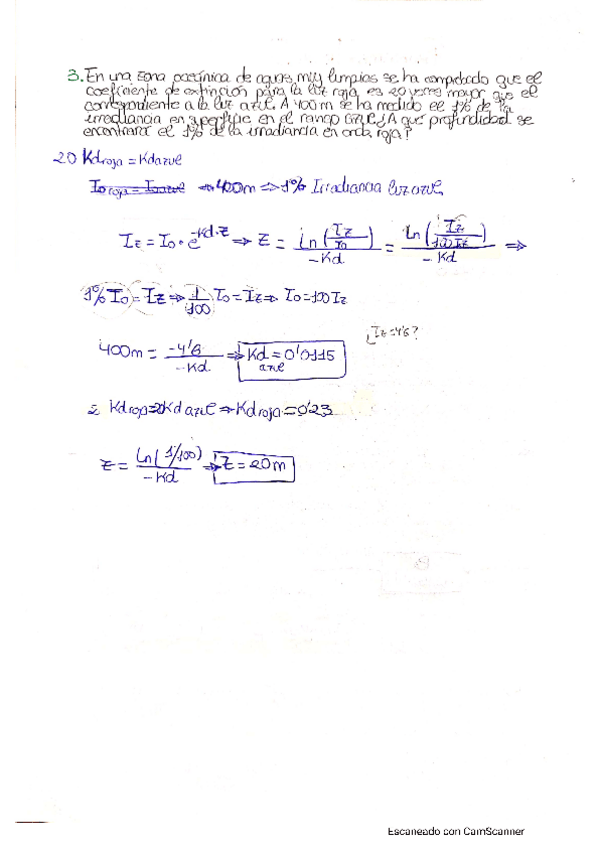 3. En una zona oceánica de aguas muy limpias se ha comprobado que el
coeficiente de extinción para la luz roja es 20 veces mayor que el
correspondiente a la luz azul. A 400m se ha medido el 1% de la
irradiancia en superficie en el rango azul ¿A qué profundidad se
encontrará el 1% de la irradiancia en onda roja?
20 Kdroja = Kdazul
I₀ roja = I₀ azul → 400m ⇒ 1% Irradiancia luz azul
Iz = I₀ · e^-Kd·z ⇒ Z = ln(Iz/I₀)/-Kd = ln(Iz/100Iz)/-Kd ⇒
1% I₀ = Iz ⇒ 1/100 I₀ = Iz ⇒ I₀ = 100 Iz
¿Iz = 4'6?
400m = -4'6/-Kd ⇒ Kd azul = 0'0115
Kdroja = 20Kd azul ⇒ Kdroja = 0'23
z = ln(1/100)/-Kd ⇒ Z = 20m
Escaneado con CamScanner